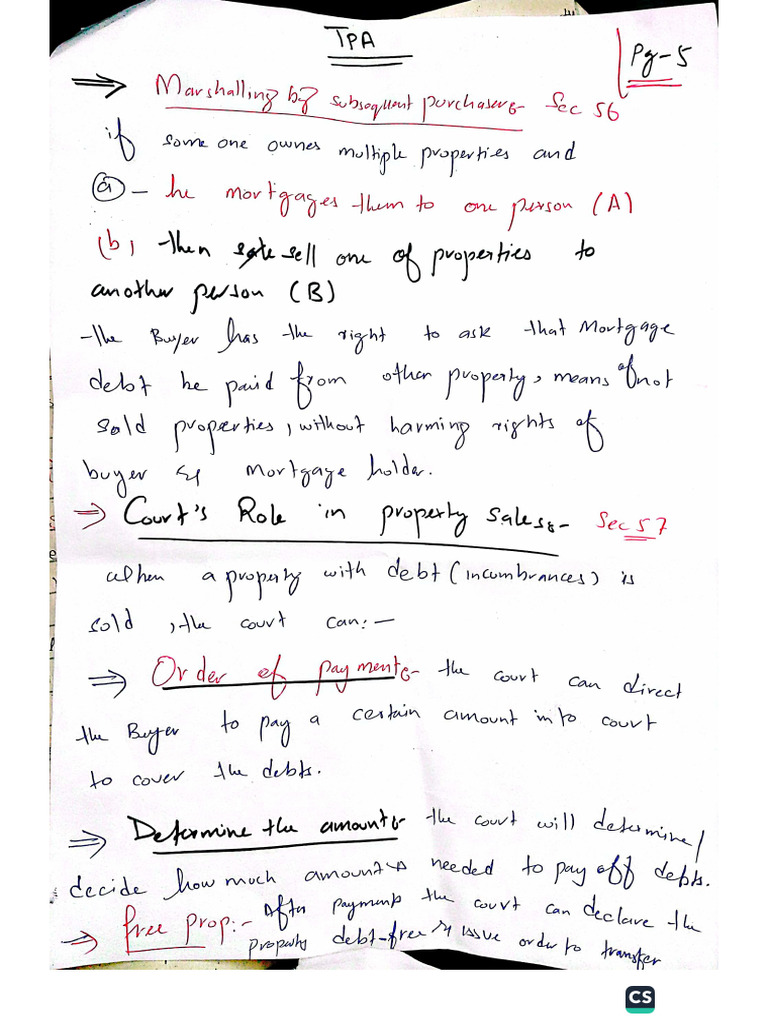 TPA
Pg-5
⇒ Marshalling by subsequent purchaser:- Sec 56
if some one ownes multiple properties and
(a) - he mortgages them to one person (A)
(b) then sell one of properties to
another person (B)
-the Buyer has the right to ask that Mortgage
debt be paid from other property, means of not
sold properties, without harming rights of
buyer & mortgage holder.
⇒ Court's Role in property sales:- Sec 57
when a property with debt (incumbrances) is
sold, the court can:-
⇒ Order of payment:- the court can direct
the Buyer to pay a certain amount into court
to cover the debts.
⇒ Determine the amount:- the court will determine/
decide how much amount is needed to pay off debts.
⇒ free prop:- After payment the court can declare the
property debt-free & issue order to transfer
CS